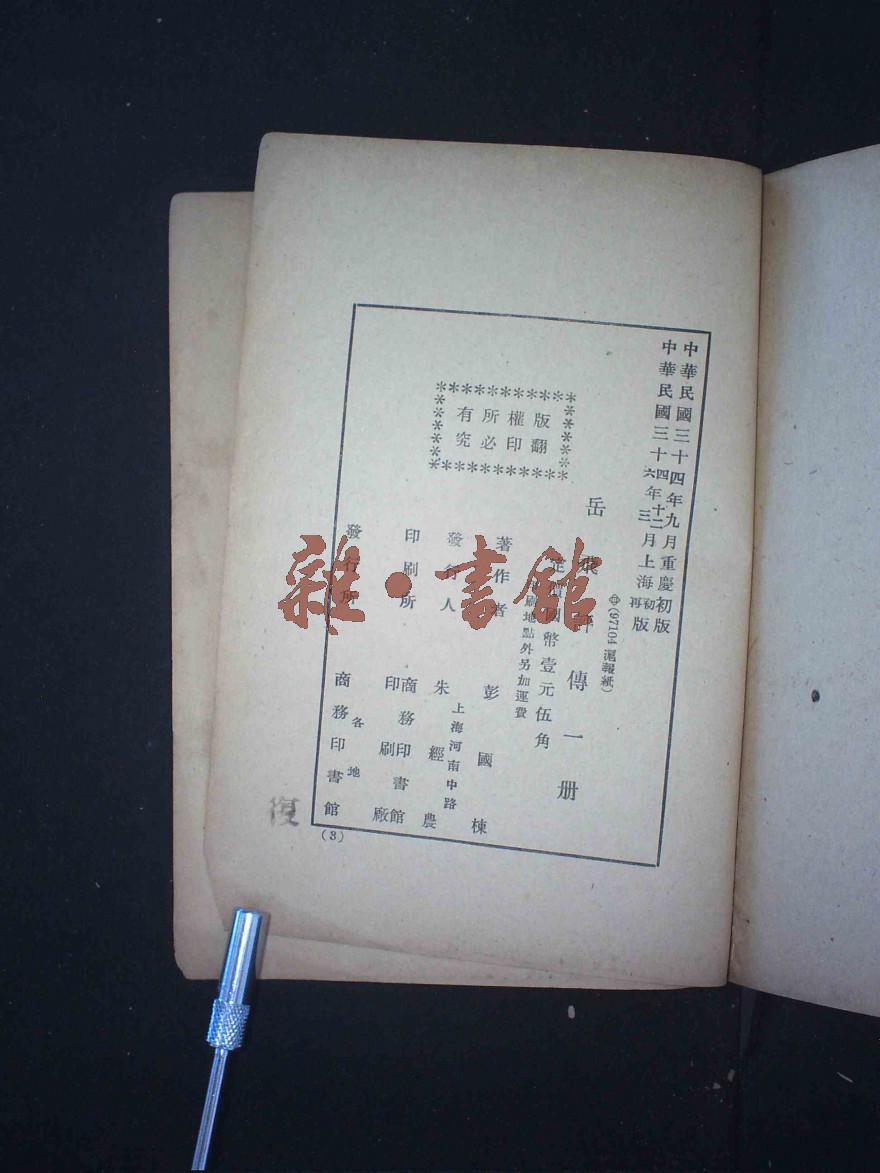 中華民國三十四年九月重慶初版
中華民國三十四年十二月上海初版
六 三 再
岳飛評傳一册
㊥(97104滬報紙)
定價國幣壹元伍角
印刷地點外另加運費
版權所有
翻印必究
著作者 彭國棟
發行人 朱經農
上海河南中路
印刷所 商務印書館
印刷廠
發行所 商務印書館
各地
(3)
復
雜·書館